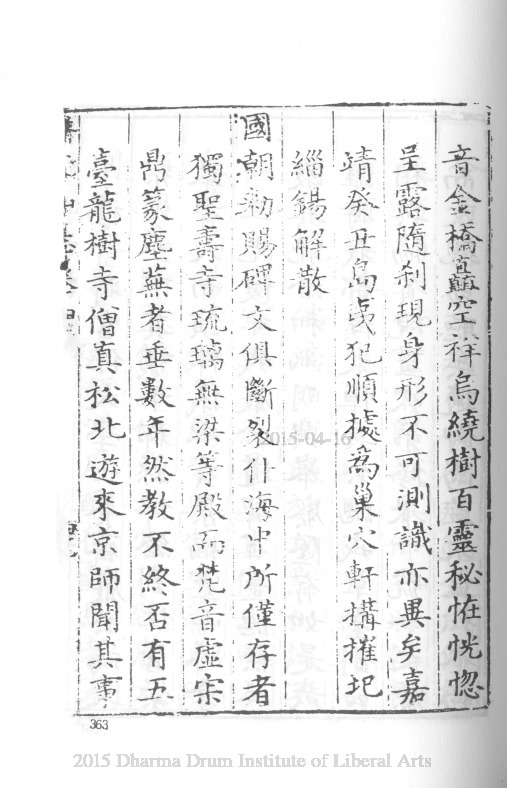 音金橋矗空祥烏繞樹百靈秘恠恍惚
呈露隨刹現身形不可測識亦異矣嘉
靖癸丑島夷犯順據為巢穴軒搆摧圯
緇錫解散
國朝勑賜碑文俱斷裂什海中所僅存者
獨聖壽寺琉璃無梁等殿而梵音虛宗
鼎篆塵蕪者垂數年然教不終否有五
臺龍樹寺僧真松北遊來京師聞其事
363
2015-04-16
2015 Dharma Drum Institute of Liberal Arts